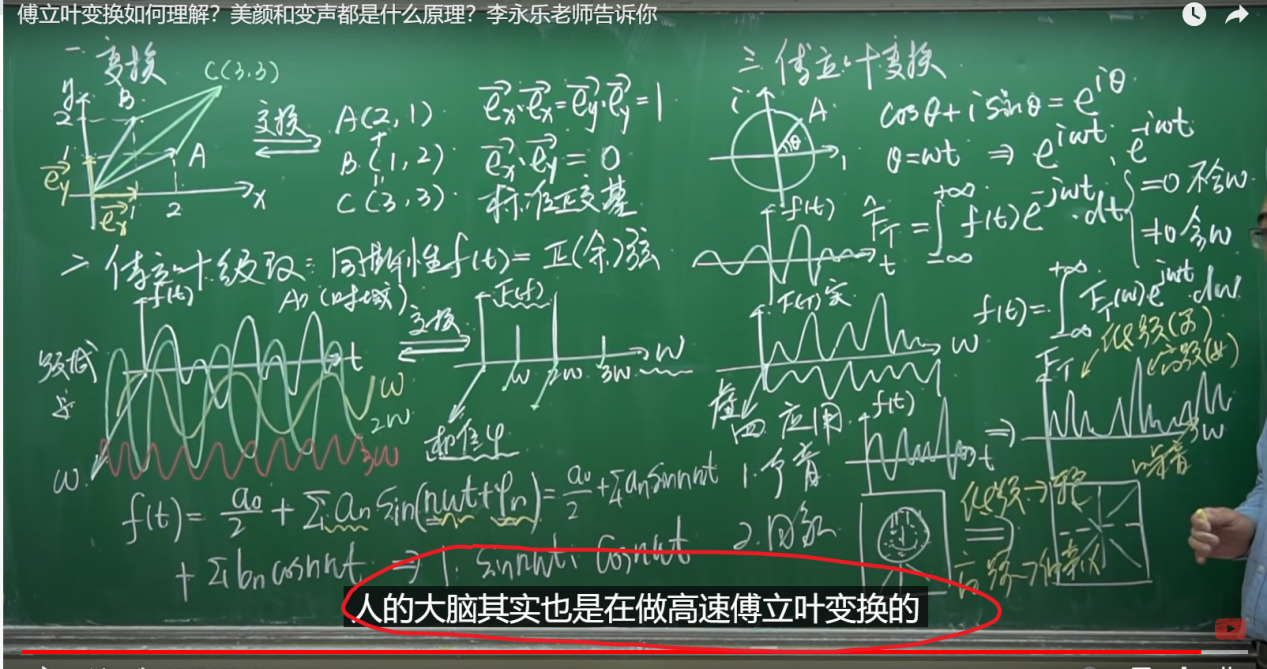 傅立叶变换如何理解？美颜和变声都是什么原理？李永乐老师告诉你
一 变换
C(3,3)
y
B
2
1
A
e⃗y
e⃗x
1
2
x
变换
A(2,1)
+
B(1,2)
C(3,3)
e⃗x·e⃗x=e⃗y·e⃗y=1
e⃗x·e⃗y=0
标准正交基
二 傅立叶级数：周期性f(t)=正(余)弦
f(t)
(时域)
t
ω
2ω
3ω
ω
变换
F(f)
ω
2ω
3ω
ω
相位φ
f(t)=a₀/2+Σaₙsin(nωt+φₙ)=a₀/2+Σaₙsinnωt
+Σbₙcosnωt ⇒ 1. sinnωt、cosnωt
三.傅立叶变换
i
A
θ
1
cosθ+isinθ=e^{iθ}
θ=ωt ⇒ e^{iωt}, e^{-iωt}
f(t)
t
F_T=∫_{-∞}^{+∞}f(t)e^{-iωt}·dt
=0 不含ω
≠0 含ω
F(T)实
ω
虚
f(t)=∫_{-∞}^{+∞}F_T(ω)e^{iωt}·dω
低频(男)
高频(女)
四.应用
f(t)
t
⇒
F_T
ω
噪音
1.声音
2.图象
低频→
⇒
高频→细节
人的大脑其实也是在做高速傅立叶变换的